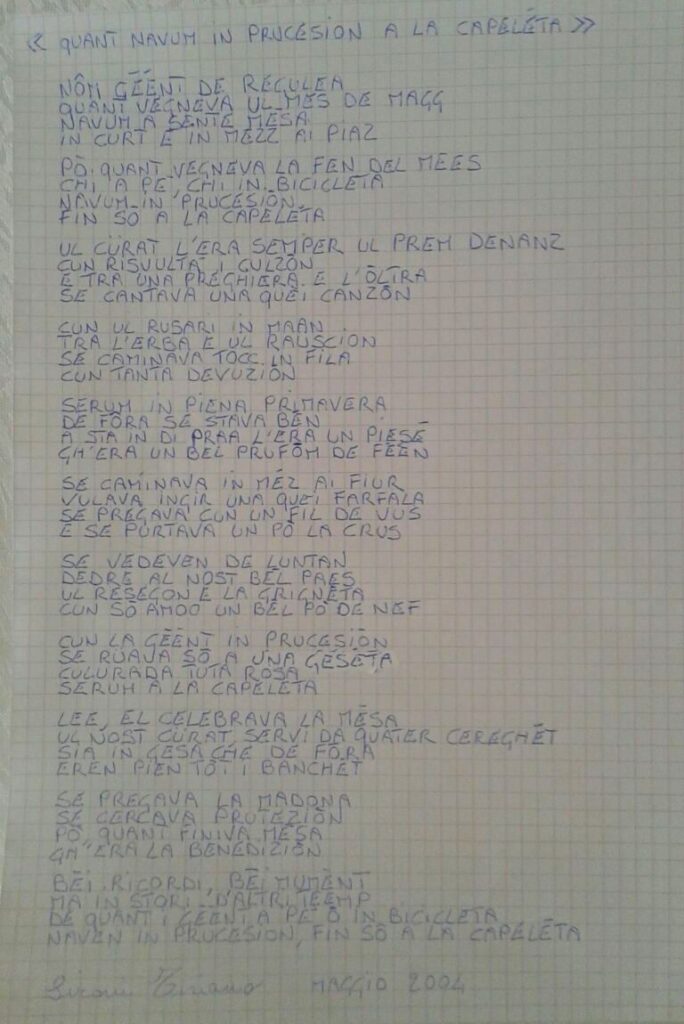 « QUANT NAVUM IN PRUCESION A LA CAPELÉTA »
NÔM GÉÉNT DE REGULEA
QUANT VEGNEVA UL MES DE MAGG
NAVUM A SENTE MESA
IN CURT E IN MEZZ AI PIAZ
PÒ QUANT VEGNEVA LA FEN DEL MEES
CHI A PE, CHI IN BICICLETA
NAVUM IN PRUCESION,
FIN SÔ A LA CAPELETA
UL CÜRAT L'ERA SEMPER UL PREM DENANZ
CUN RISVULTA' I CULZÔN
E TRA UNA PREGHIERA E L'ÔLTRA
SE CANTAVA UNA QUEI CANZÔN
CUN UL RUSARI IN MAAN
TRA L'ERBA E UL RAUSCION
SE CAMINAVA TOCC IN FILA
CUN TANTA DEVUZIÔN
SERUM IN PIENA PRIMAVERA
DE FÔRA SE STAVA BEN
A STA IN DI PRAA L'ERA UN PIESÉ
GH'ERA UN BEL PRUFÔM DE FEEN
SE CAMINAVA IN MÉZ AI FIUR
VULAVA INGIR UNA QUEI FARFALA
SE PREGAVA CUN UN FIL DE VUS
E SE PURTAVA UN PÔ LA CRUS
SE VEDEVEN DE LUNTAN
DEDRE AL NOST BÉL PAES
UL RESEGON E LA GRIGNÉTA
CUN SÔ AMOO UN BEL PÔ DE NEF
CUN LA GÉÉNT IN PRUCESIÔN
SE RUAVA SÔ A UNA GESÉTA
CULURADA TUTA ROSA
SERUM A LA CAPELETA
LEE, EL CELEBRAVA LA MÉSA
UL NOST CÜRAT SERVI DA QUATER CEREGHÉT
SIA IN GESA CHE DE FÔRA
EREN PIEN TÔT I BANCHET
SE PREGAVA LA MADONA
SE CERCAVA PRUTEZIÔN
PÔ, QUANT FINIVA MÉSA
GH'ERA LA BENEDIZIÔN
BÉI RICORDI, BÉI MUMÉNT
MA IN STORI D'ALTRI TEEMP
DE QUANT I GEENT A PE Ô IN BICICLETA
NAVEN IN PRUCESION, FIN SÔ A LA CAPELÉTA
MAGGIO 2004